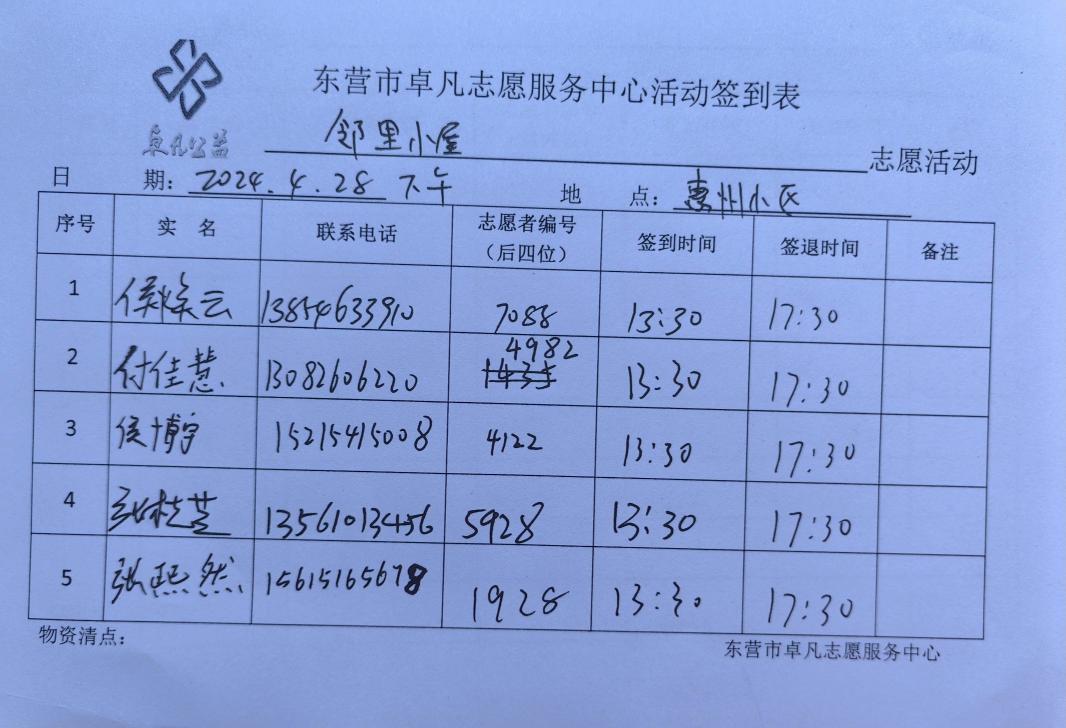 东营市卓凡志愿服务中心活动签到表
卓凡公益
邻里小屋 志愿活动
日 期: 2024.4.28 下午 地 点: 惠州小区
序号 实 名 联系电话 志愿者编号（后四位） 签到时间 签退时间 备注
1 侯焕云 13854633910 7088 13:30 17:30
2 付佳慧 13082606220 4982 13:30 17:30
3 侯博宇 15215415008 4122 13:30 17:30
4 张桂芝 13561013456 5928 13:30 17:30
5 张熙然 15615165678 1928 13:30 17:30
物资清点:
东营市卓凡志愿服务中心